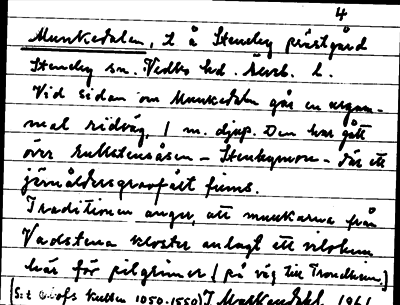 4
Munkedalen, t å Steneby prästgård
Steneby sn. Vedbo hd. Älvsb. l.
Vid sidan om Munkedalen går en urgam-
mal ridväg, 1 m. djup. Den har gått
över rullstensåsen – Stenbymon – där ett
järnåldersgravfält finns.
Traditionen anger, att munkarna från
Vadstena kloster anlagt ett vilohem
här för pilgrimer (på väg till Trondheim.)
(S:t Olofs kulten 1050-1550) 1961